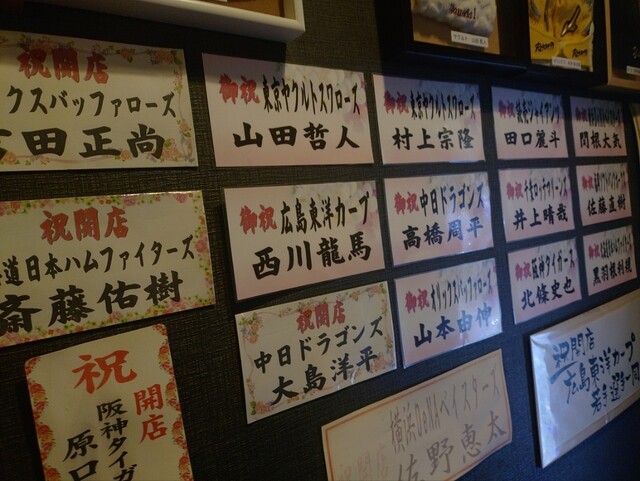 祝開店
クスバッファローズ
田正尚
御祝 東京ヤクルトスワローズ
山田哲人
御祝 東京ヤクルトスワローズ
村上宗隆
御祝
田口麗斗
御祝
関根大気
祝開店
道日本ハムファイターズ
斎藤佑樹
御祝 広島東洋カープ
西川龍馬
御祝 中日ドラゴンズ
高橋周平
御祝 千葉ロッテマリーンズ
井上晴哉
御祝
佐藤直樹
祝開店
中日ドラゴンズ
大島洋平
御祝 オリックスバッファローズ
山本由伸
御祝 阪神タイガース
北條史也
御祝
黒羽根利規
祝
開店
阪神タイガ
原口
祝開店
横浜DeNAベイスターズ
佐野恵太
祝開店
広島東洋カープ